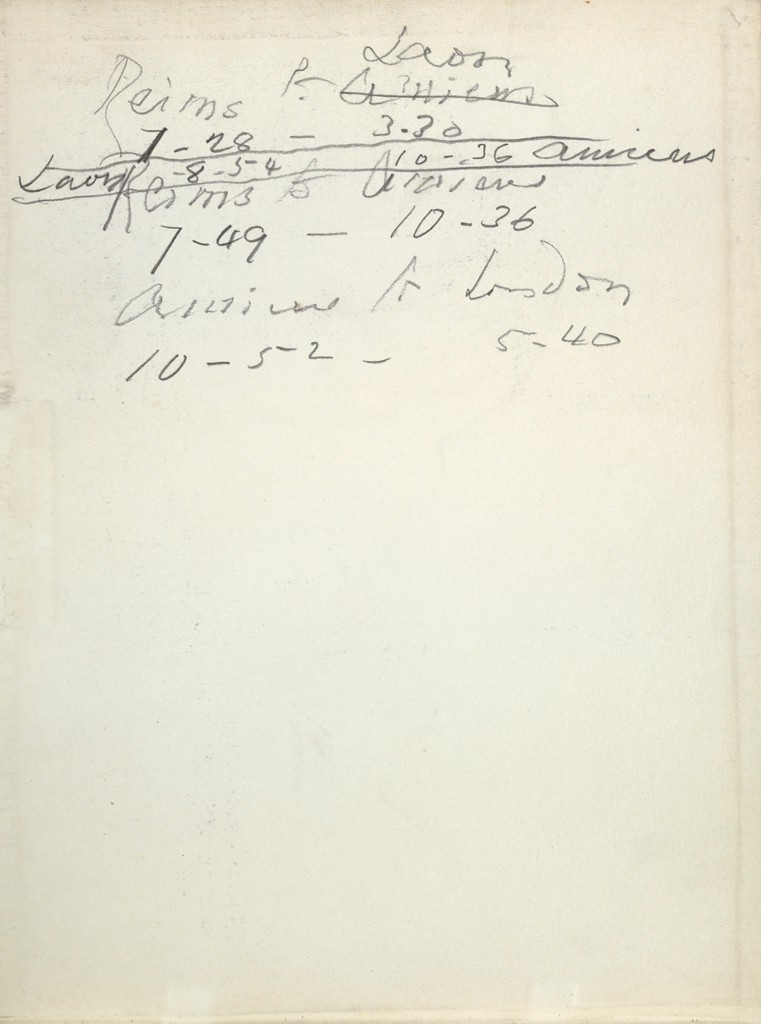 Laon
Reims to Amiens
7-28 - 3.30
Laon -8-54 10-36 Amiens
Reims to Amiens
7-49 - 10-36
Amiens to London
10-52 - 5-40